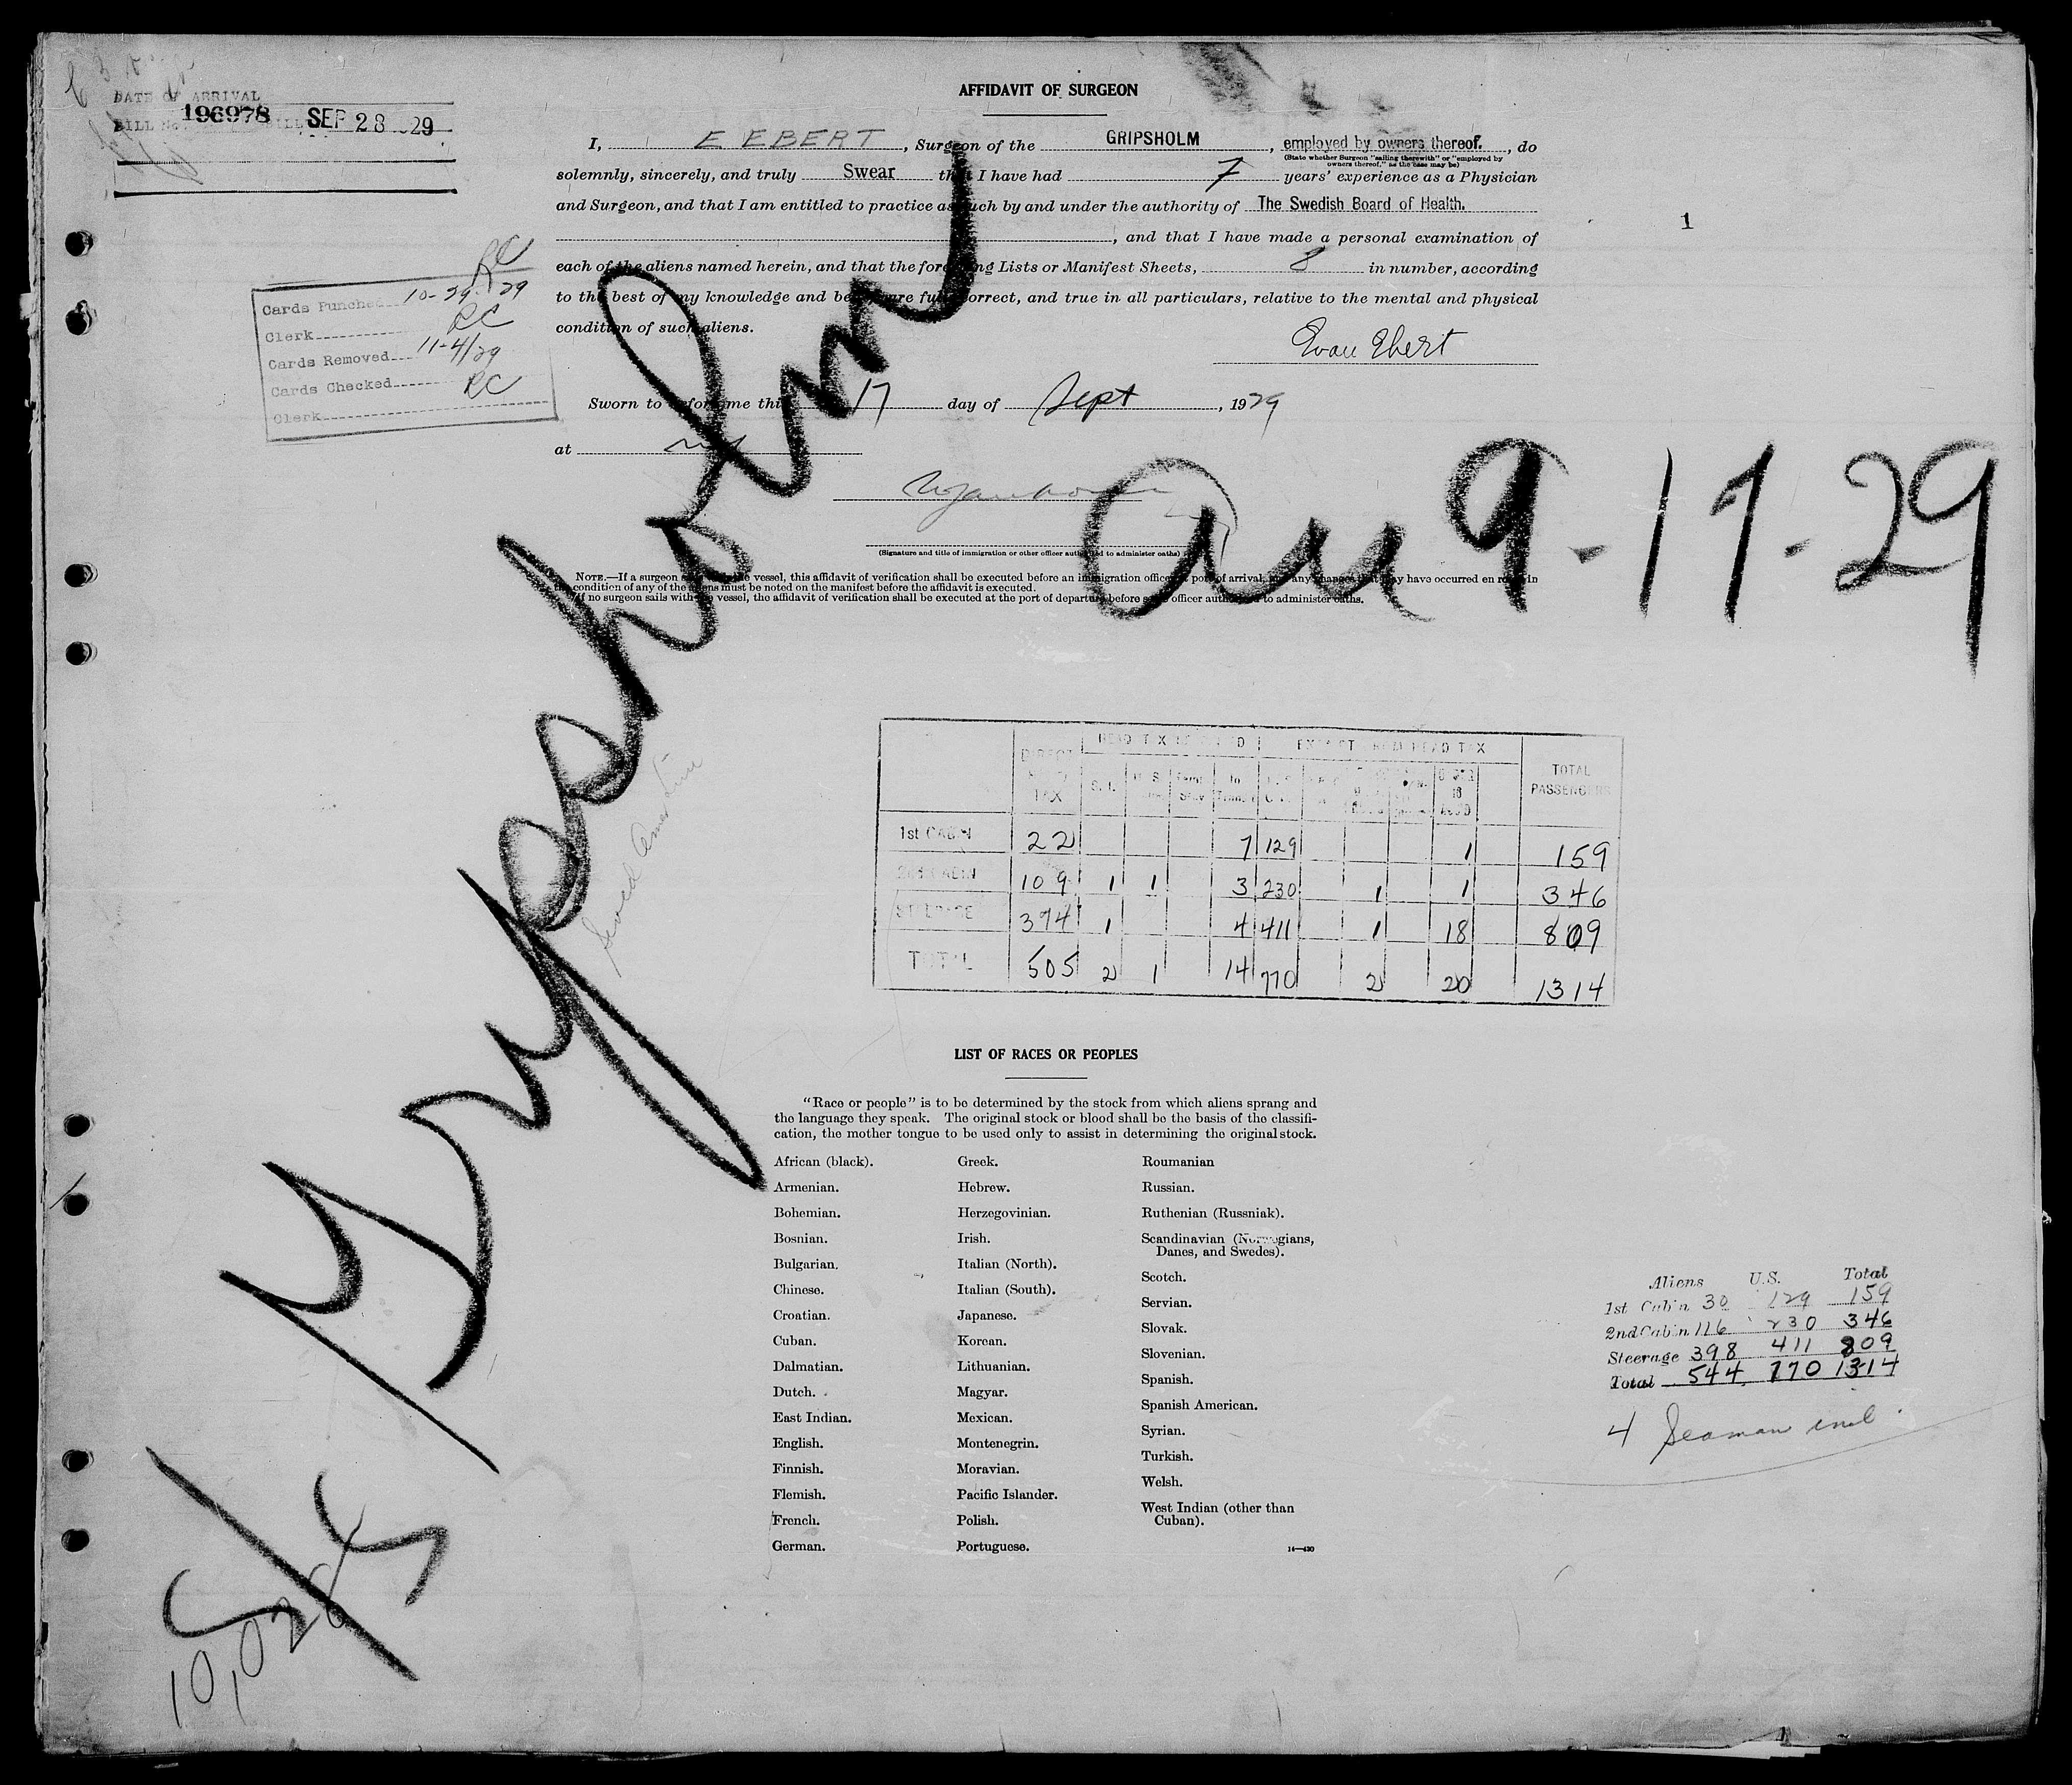 DATE OF ARRIVAL
196978 SEP 28 .29
BILL No.
AFFIDAVIT OF SURGEON
I, E EBERT, Surgeon of the GRIPSHOLM, employed by owners thereof., do
(State whether Surgeon "sailing therewith" or "employed by owners thereof," as the case may be)
solemnly, sincerely, and truly Swear that I have had 7 years' experience as a Physician
and Surgeon, and that I am entitled to practice as such by and under the authority of The Swedish Board of Health.
, and that I have made a personal examination of
each of the aliens named herein, and that the foregoing Lists or Manifest Sheets, 8 in number, according
to the best of my knowledge and belief, are full, correct, and true in all particulars, relative to the mental and physical
condition of such aliens.
Evan Ebert
1
RC
Cards Punched 10-29-29
Clerk RC
Cards Removed 11-4/29
Cards Checked RC
Clerk
Sworn to before me this 17 day of Sept, 1929
at
(Signature and title of immigration or other officer authorized to administer oaths)
NOTE.—If a surgeon sails with the vessel, this affidavit of verification shall be executed before an immigration officer at port of arrival, and any changes that may have occurred en route in
the condition of any of the aliens must be noted on the manifest before the affidavit is executed.
If no surgeon sails with the vessel, the affidavit of verification shall be executed at the port of departure before some officer authorized to administer oaths.
S/S Gripsholm
Arr 9-17-29
Swed Amer Line
10,026
DIRECT HEAD TAX EXEMPT FROM HEAD TAX TOTAL PASSENGERS
1st CABIN 22 7 129 1 159
2nd CABIN 109 1 1 3 230 1 1 346
STEERAGE 374 1 4 411 1 18 809
TOTAL 505 2 1 14 770 2 20 1314
LIST OF RACES OR PEOPLES
"Race or people" is to be determined by the stock from which aliens sprang and
the language they speak. The original stock or blood shall be the basis of the classifi-
cation, the mother tongue to be used only to assist in determining the original stock.
African (black).
Armenian.
Bohemian.
Bosnian.
Bulgarian.
Chinese.
Croatian.
Cuban.
Dalmatian.
Dutch.
East Indian.
English.
Finnish.
Flemish.
French.
German.
Greek.
Hebrew.
Herzegovinian.
Irish.
Italian (North).
Italian (South).
Japanese.
Korean.
Lithuanian.
Magyar.
Mexican.
Montenegrin.
Moravian.
Pacific Islander.
Polish.
Portuguese.
Roumanian
Russian.
Ruthenian (Russniak).
Scandinavian (Norwegians,
Danes, and Swedes).
Scotch.
Servian.
Slovak.
Slovenian.
Spanish.
Spanish American.
Syrian.
Turkish.
Welsh.
West Indian (other than
Cuban).
14—430
Aliens U.S. Total
1st Cabin 30 129 159
2nd Cabin 116 230 346
Steerage 398 411 809
Total 544 770 1314
4 Seaman incl.